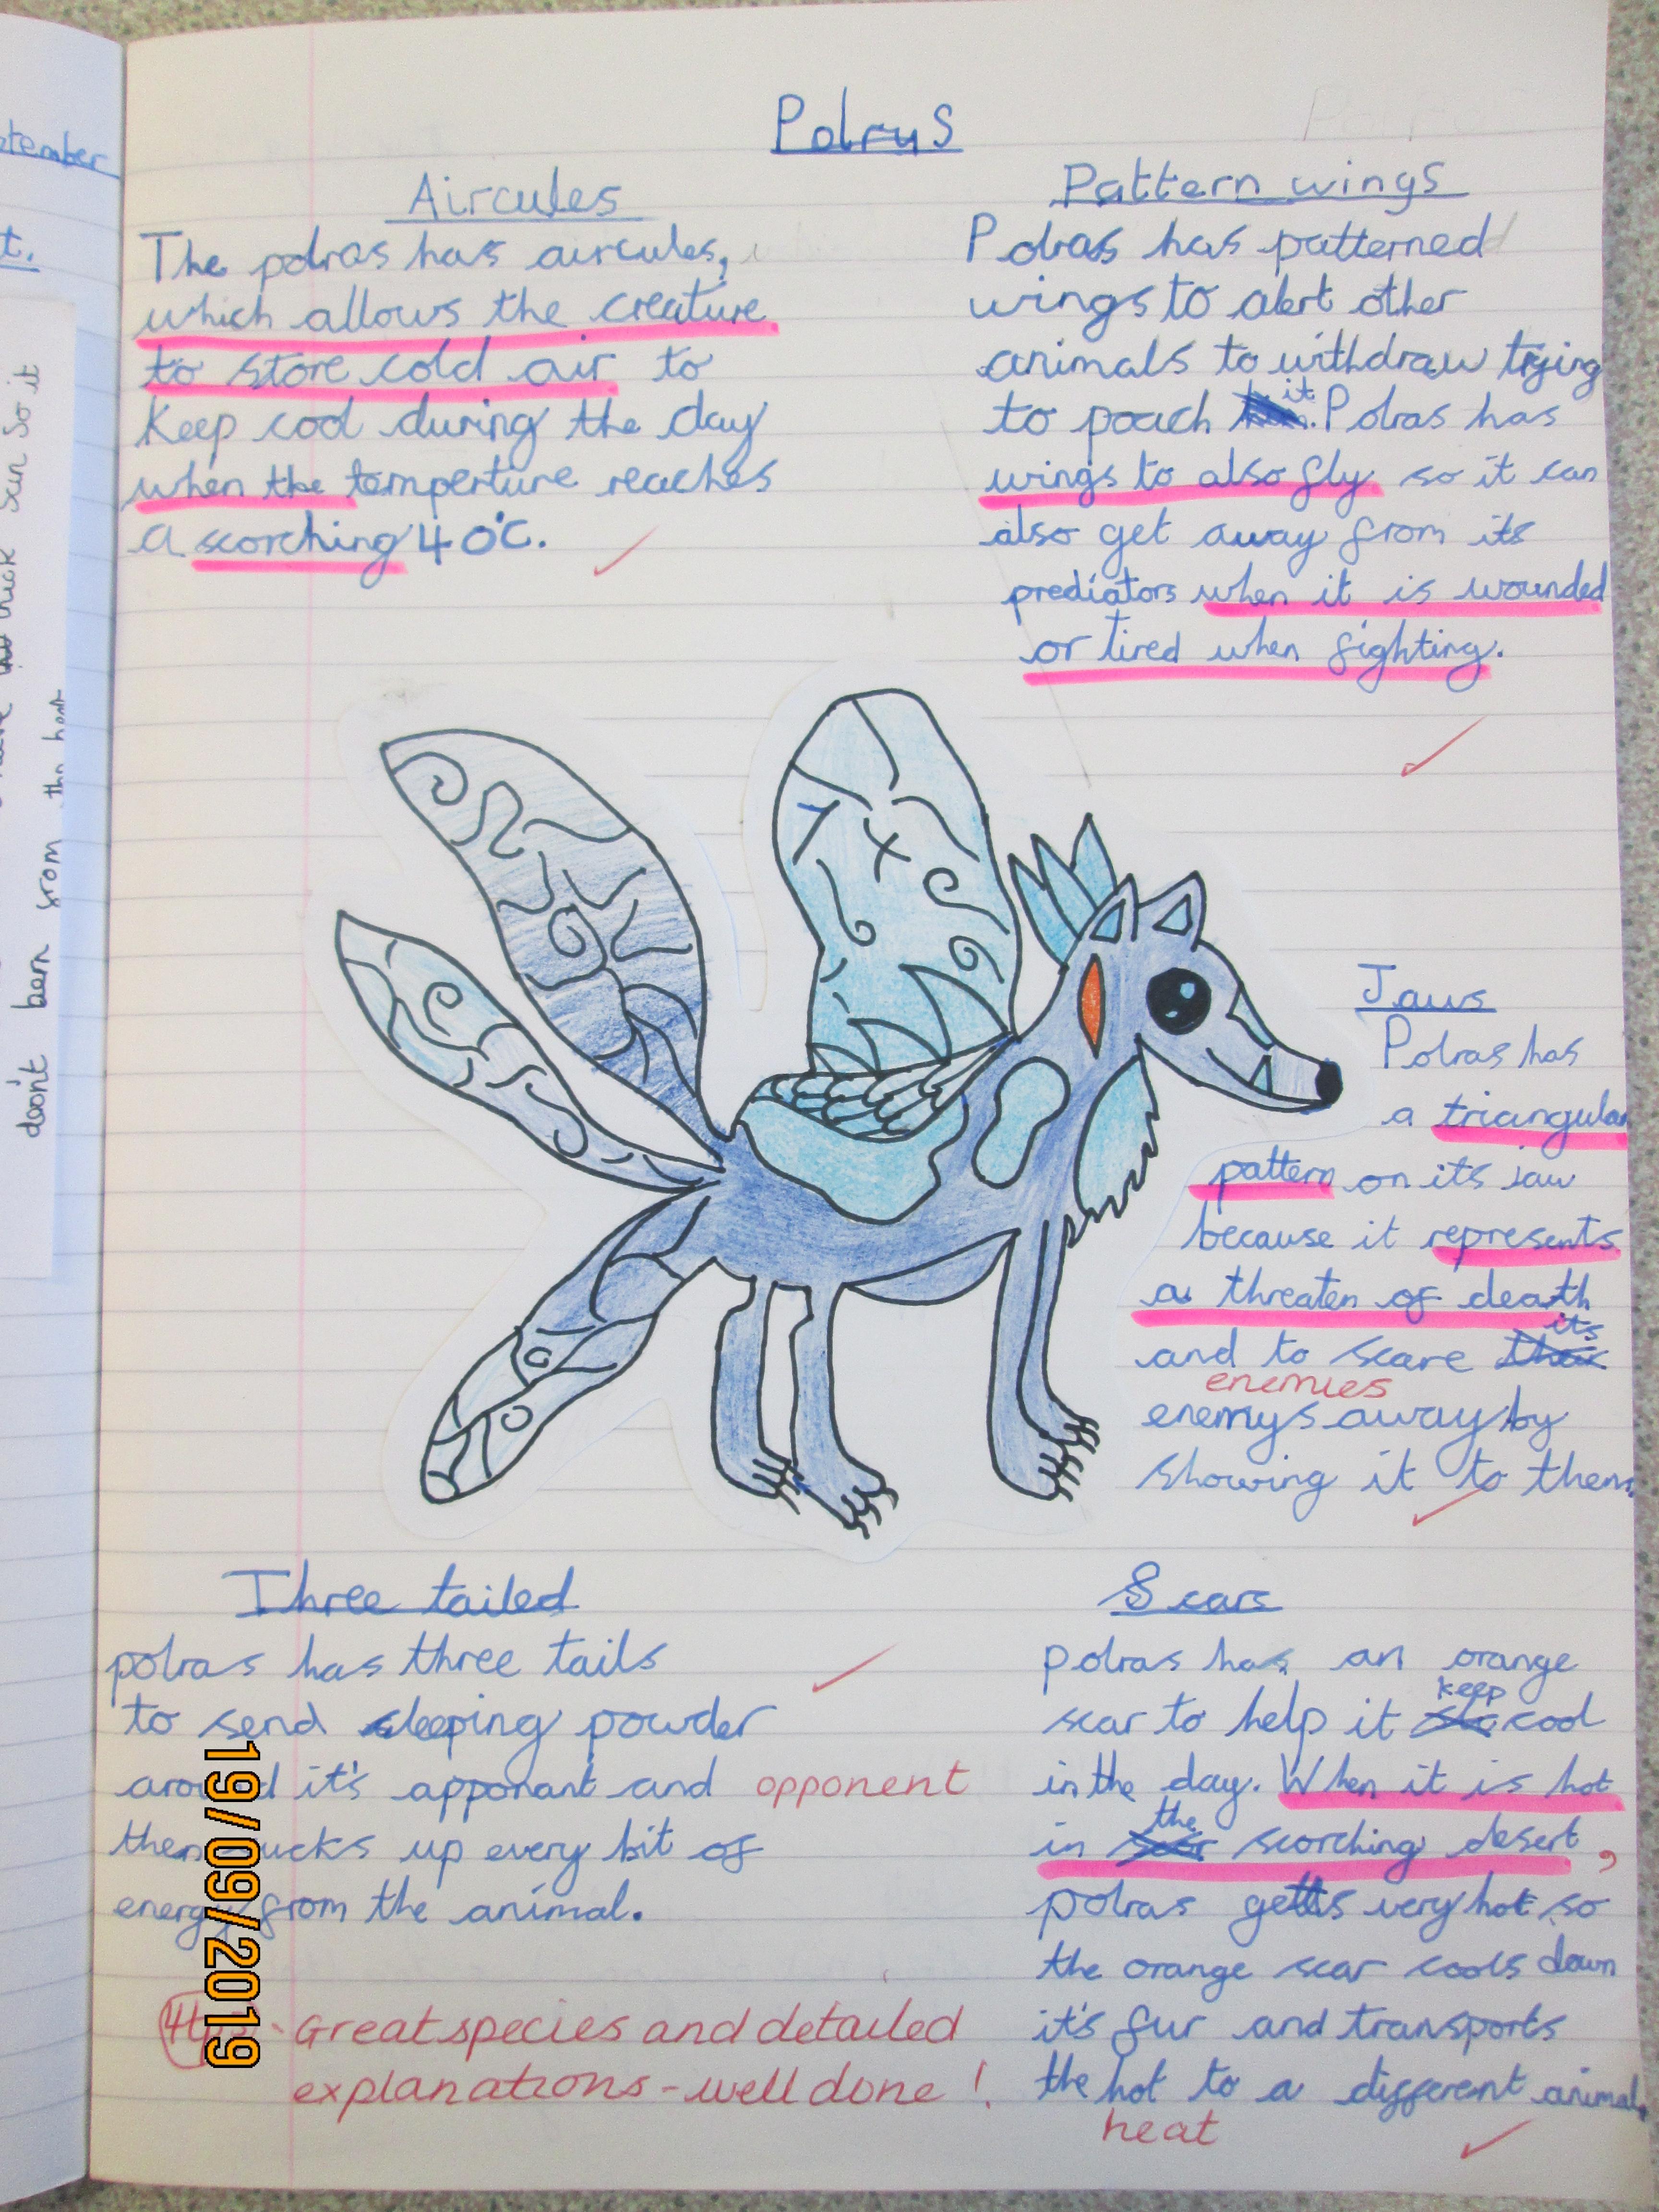 Polrus
Aircules
The polras has aircules,
which allows the creature
to store cold air to
keep cool during the day
when the temperture reaches
a scorching 40°C.
Pattern wings
Polras has patterned
wings to alert other
animals to withdraw trying
to poach it. Polras has
wings to also fly so it can
also get away from its
prediators when it is wounded
or tired when fighting.
Jaws
Polras has
a triangular
pattern on its jaw
because it represents
a threaten of death
and to scare its
enemies
enemys away by
showing it to them.
Three tailed
polras has three tails
to send sleeping powder
around it's apponant and opponent
then sucks up every bit of
energy from the animal.
Scars
polras has an orange
scar to help it keep cool
in the day. When it is hot
in the scorching desert,
polras getts very hot so
the orange scar cools down
it's fur and transports
the hot to a different animal.
heat
- Great species and detailed
explanations - well done !
19/09/2019
ptember
t.
thick sun so it
don't bern from the heat